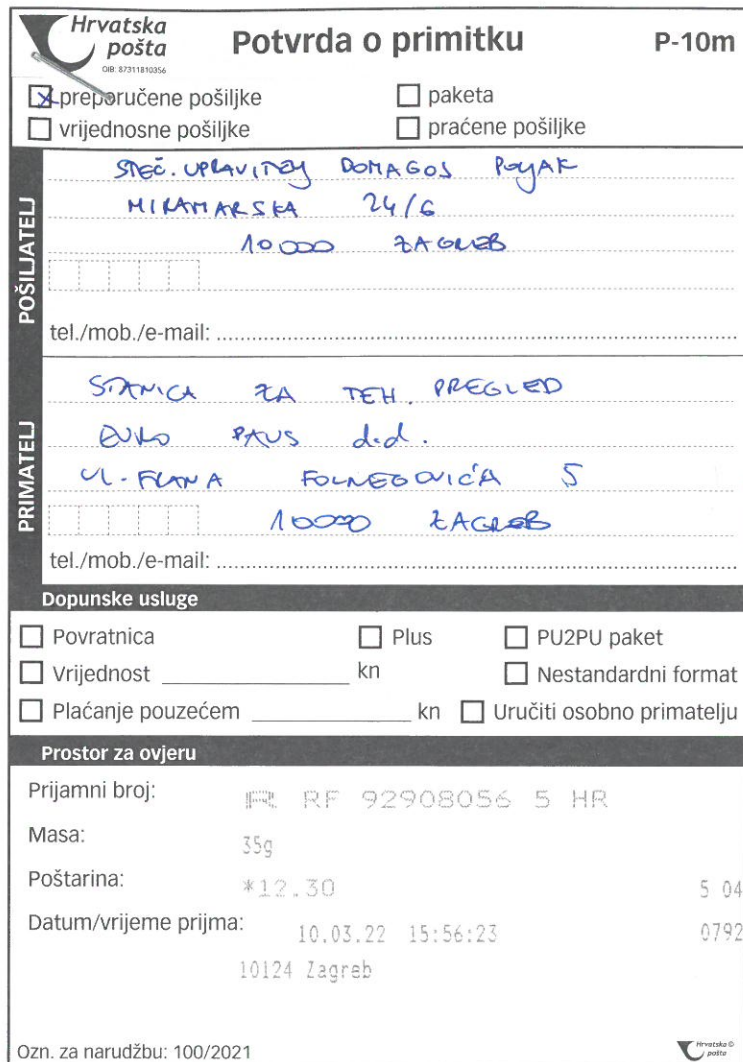 Hrvatska
pošta
OIB: 87311810356
Potvrda o primitku
P-10m
preporučene pošiljke
paketa
vrijednosne pošiljke
praćene pošiljke
POŠILJATELJ
STEČ. UPRAVITELJ DOMAGOJ POLJAK
MIRAMARSKA 24/6
10000 ZAGREB
tel./mob./e-mail:
PRIMATELJ
STANICA ZA TEH. PREGLED
EURO d.d.
UL. FRANA FOLNEGOVIĆA 5
10000 ZAGREB
tel./mob./e-mail:
Dopunske usluge
Povratnica
Plus
PU2PU paket
Vrijednost kn
Nestandardni format
Plaćanje pouzećem kn
Uručiti osobno primatelju
Prostor za ovjeru
Prijamni broj: R RF 92908056 5 HR
Masa: 35g
Poštarina: *12.30 5 04
Datum/vrijeme prijma: 10.03.22 15:56:23 0792
10124 Zagreb
Ozn. za narudžbu: 100/2021
Hrvatska
pošta